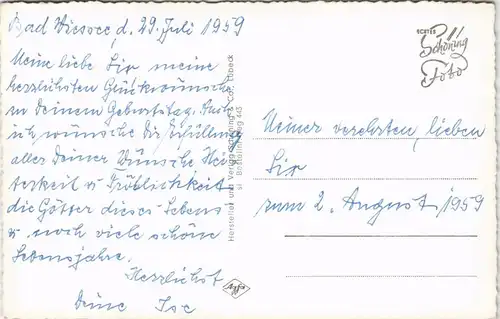 Bad Wiessee, d. 29. Juli 1959
Meine liebe Lix meine
herzlichsten Glückwünsche
zu Deinem Geburtstag. Auch
ich wünsche Dir Erfüllung
aller Deiner Wünsche Hei-
terkeit u Fröhlichkeit
die Götter dieses Lebens
u noch viele schöne
Lebensjahre.
Herzlichst
Deine
Hersteller und Verlag Schöning & Co., Lübeck
445
ECHTES
Schöning
Foto
Agfa
Meiner verehrten, lieben
Lix
zum 2. August 1959